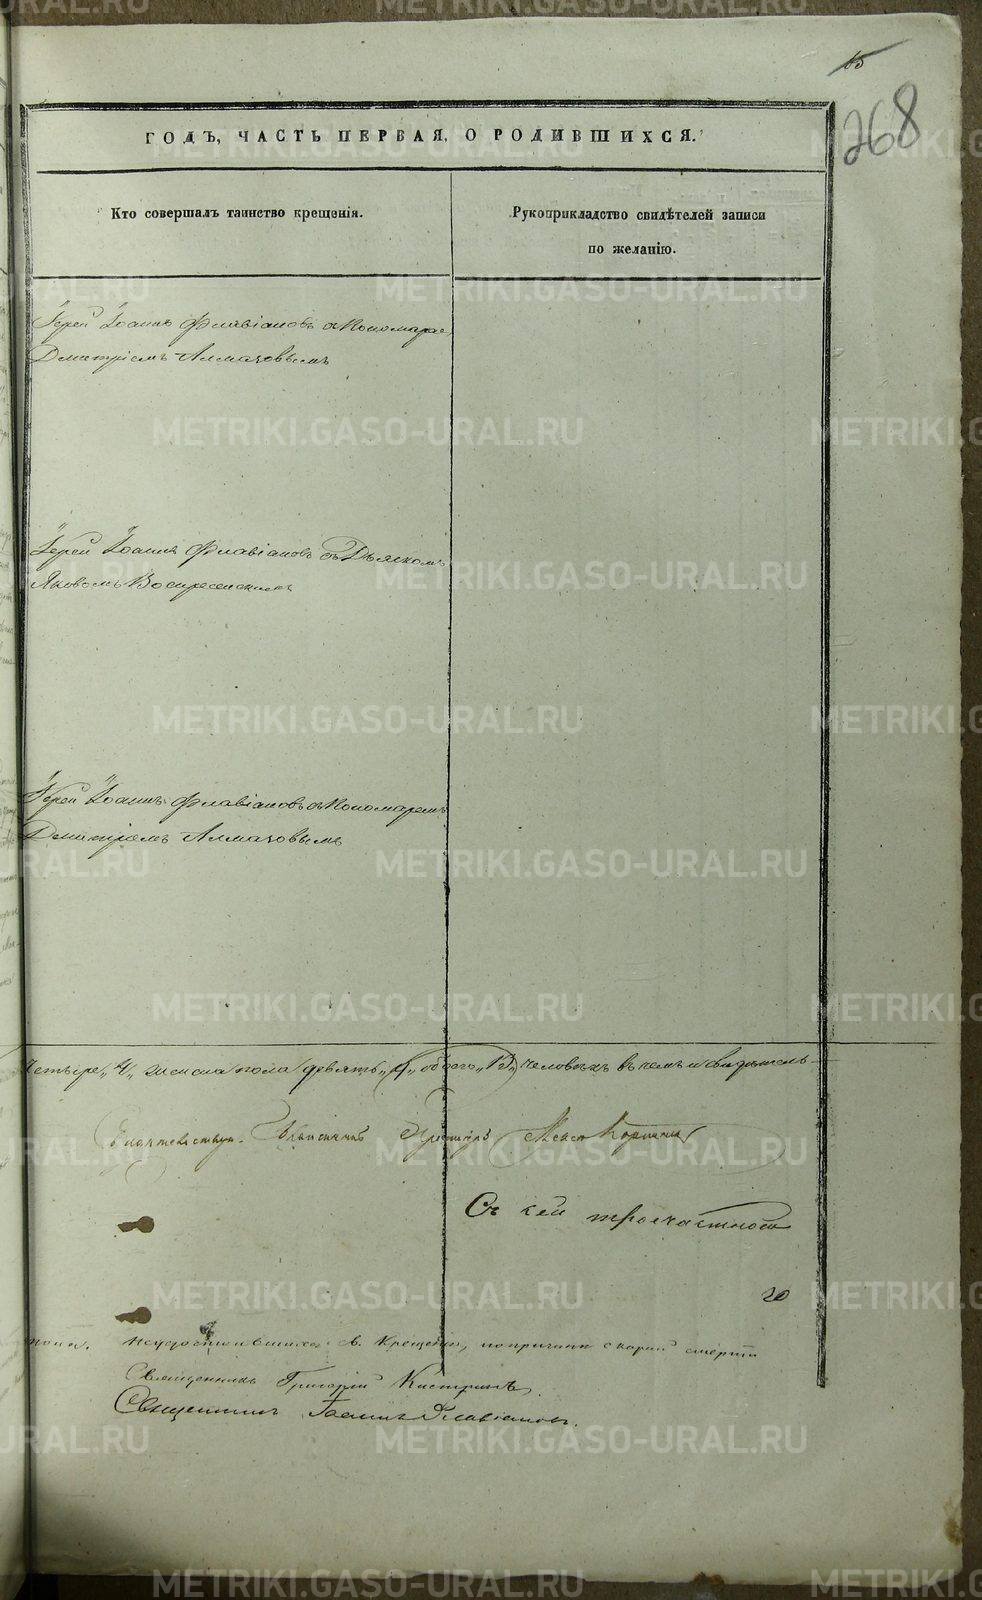 268
ГОДЪ, ЧАСТЬ ПЕРВАЯ, О РОДИВШИХСЯ.
Кто совершалъ таинство крещенія.
Рукоприкладство свидѣтелей записи
по желанію.
Іерей Іоаннъ Флавіановъ съ Пономаре
Дмитріемъ Алмазовымъ
Іерей Іоаннъ Флавіановъ съ Дьячкомъ
Яковомъ Воскресенскимъ
Іерей Іоаннъ Флавіановъ съ Пономаремъ
Дмитріемъ Алмазовымъ
четыре, 4, женска пола девять, обоего, 13, человѣкъ въ чемъ и свидѣтель-
Священникъ
Съ кей
20
неудостоившихся Св. Крещенія, по причинѣ скорой смерти
Священникъ Григорій
Священникъ Іоаннъ Флавіановъ.
METRIKI.GASO-URAL.RU